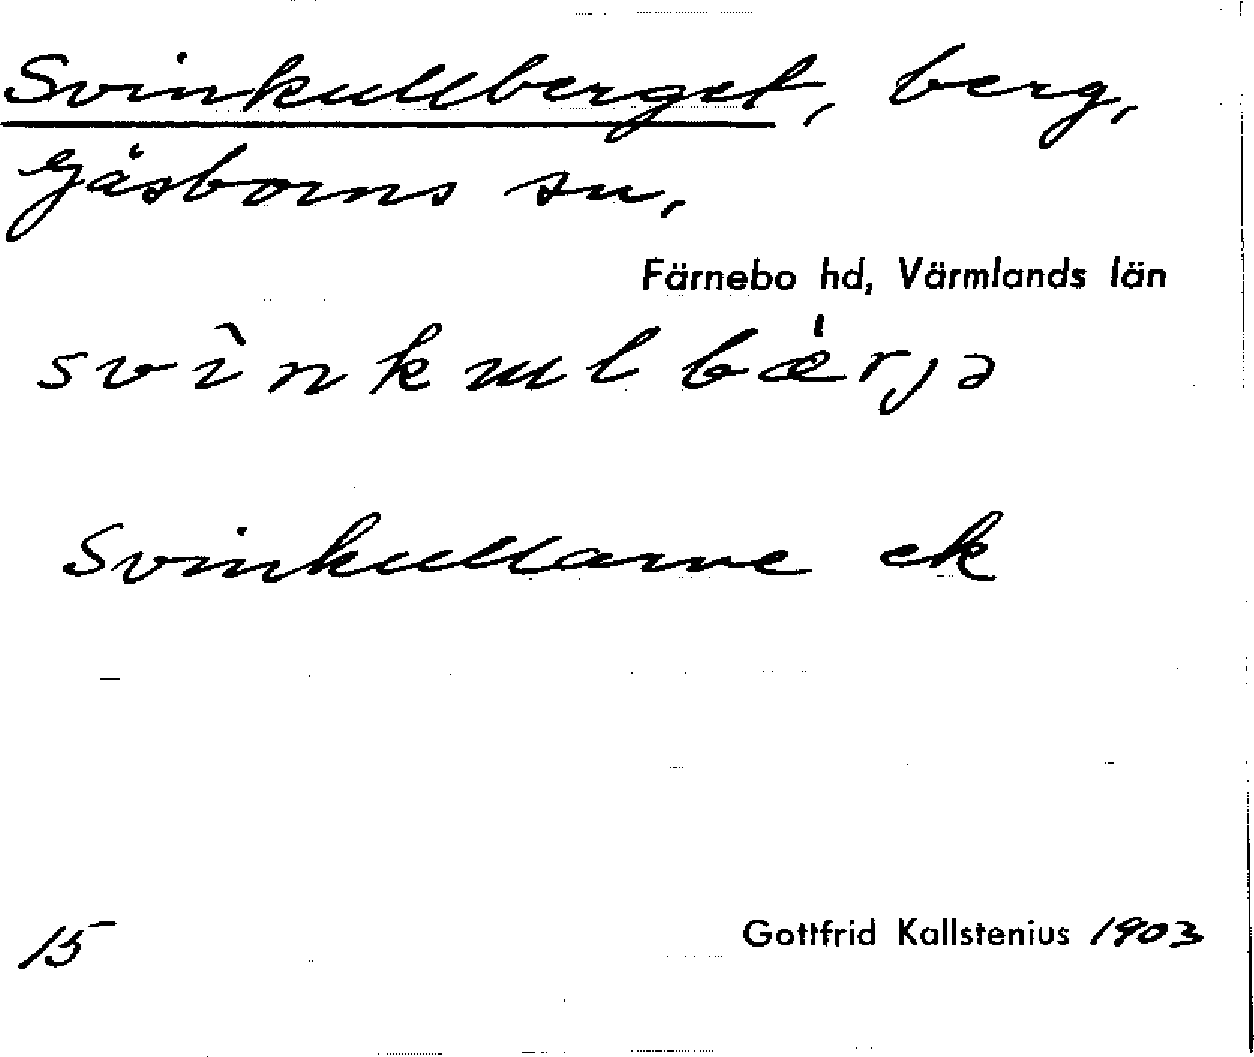 Svinkullberget, berg,
Gåsborns sn,
Färnebo hd, Värmlands län
svìnkɯlbæ̍rjə
Svinkullarne ek
15
Gottfrid Kallstenius 1903